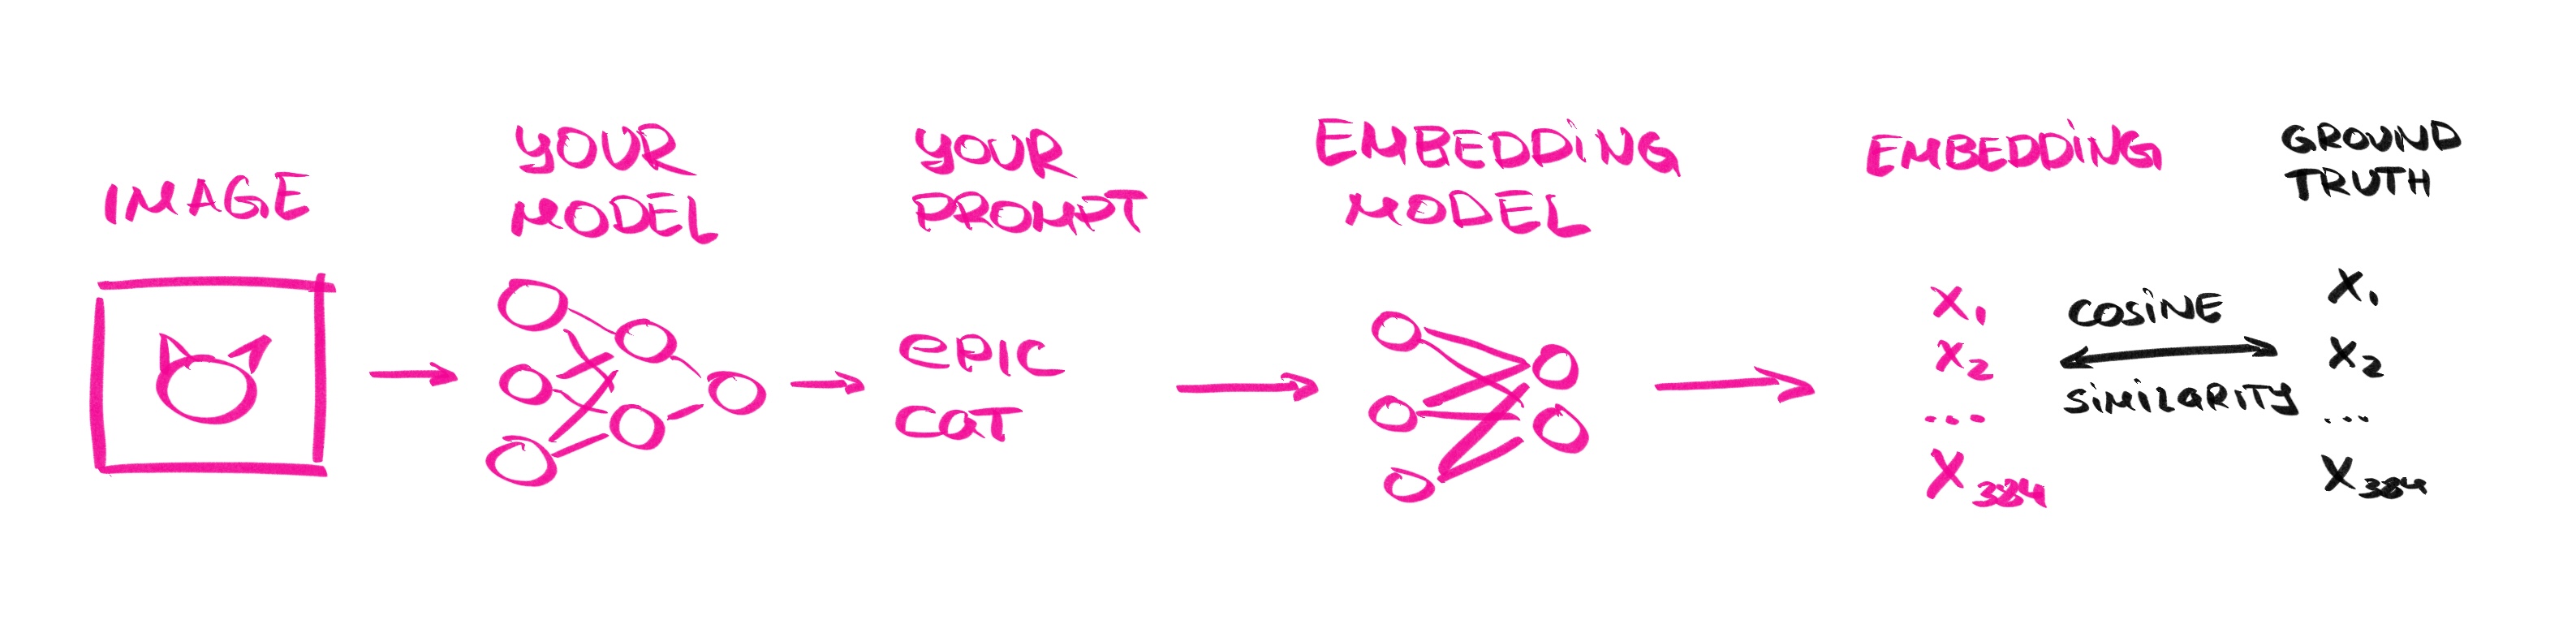 IMAGE
YOUR
MODEL
YOUR
PROMPT
EPIC
CAT
EMBEDDING
MODEL
EMBEDDING
X1
X2
...
X384
COSINE
SIMILARITY
GROUND
TRUTH
X1
X2
...
X384